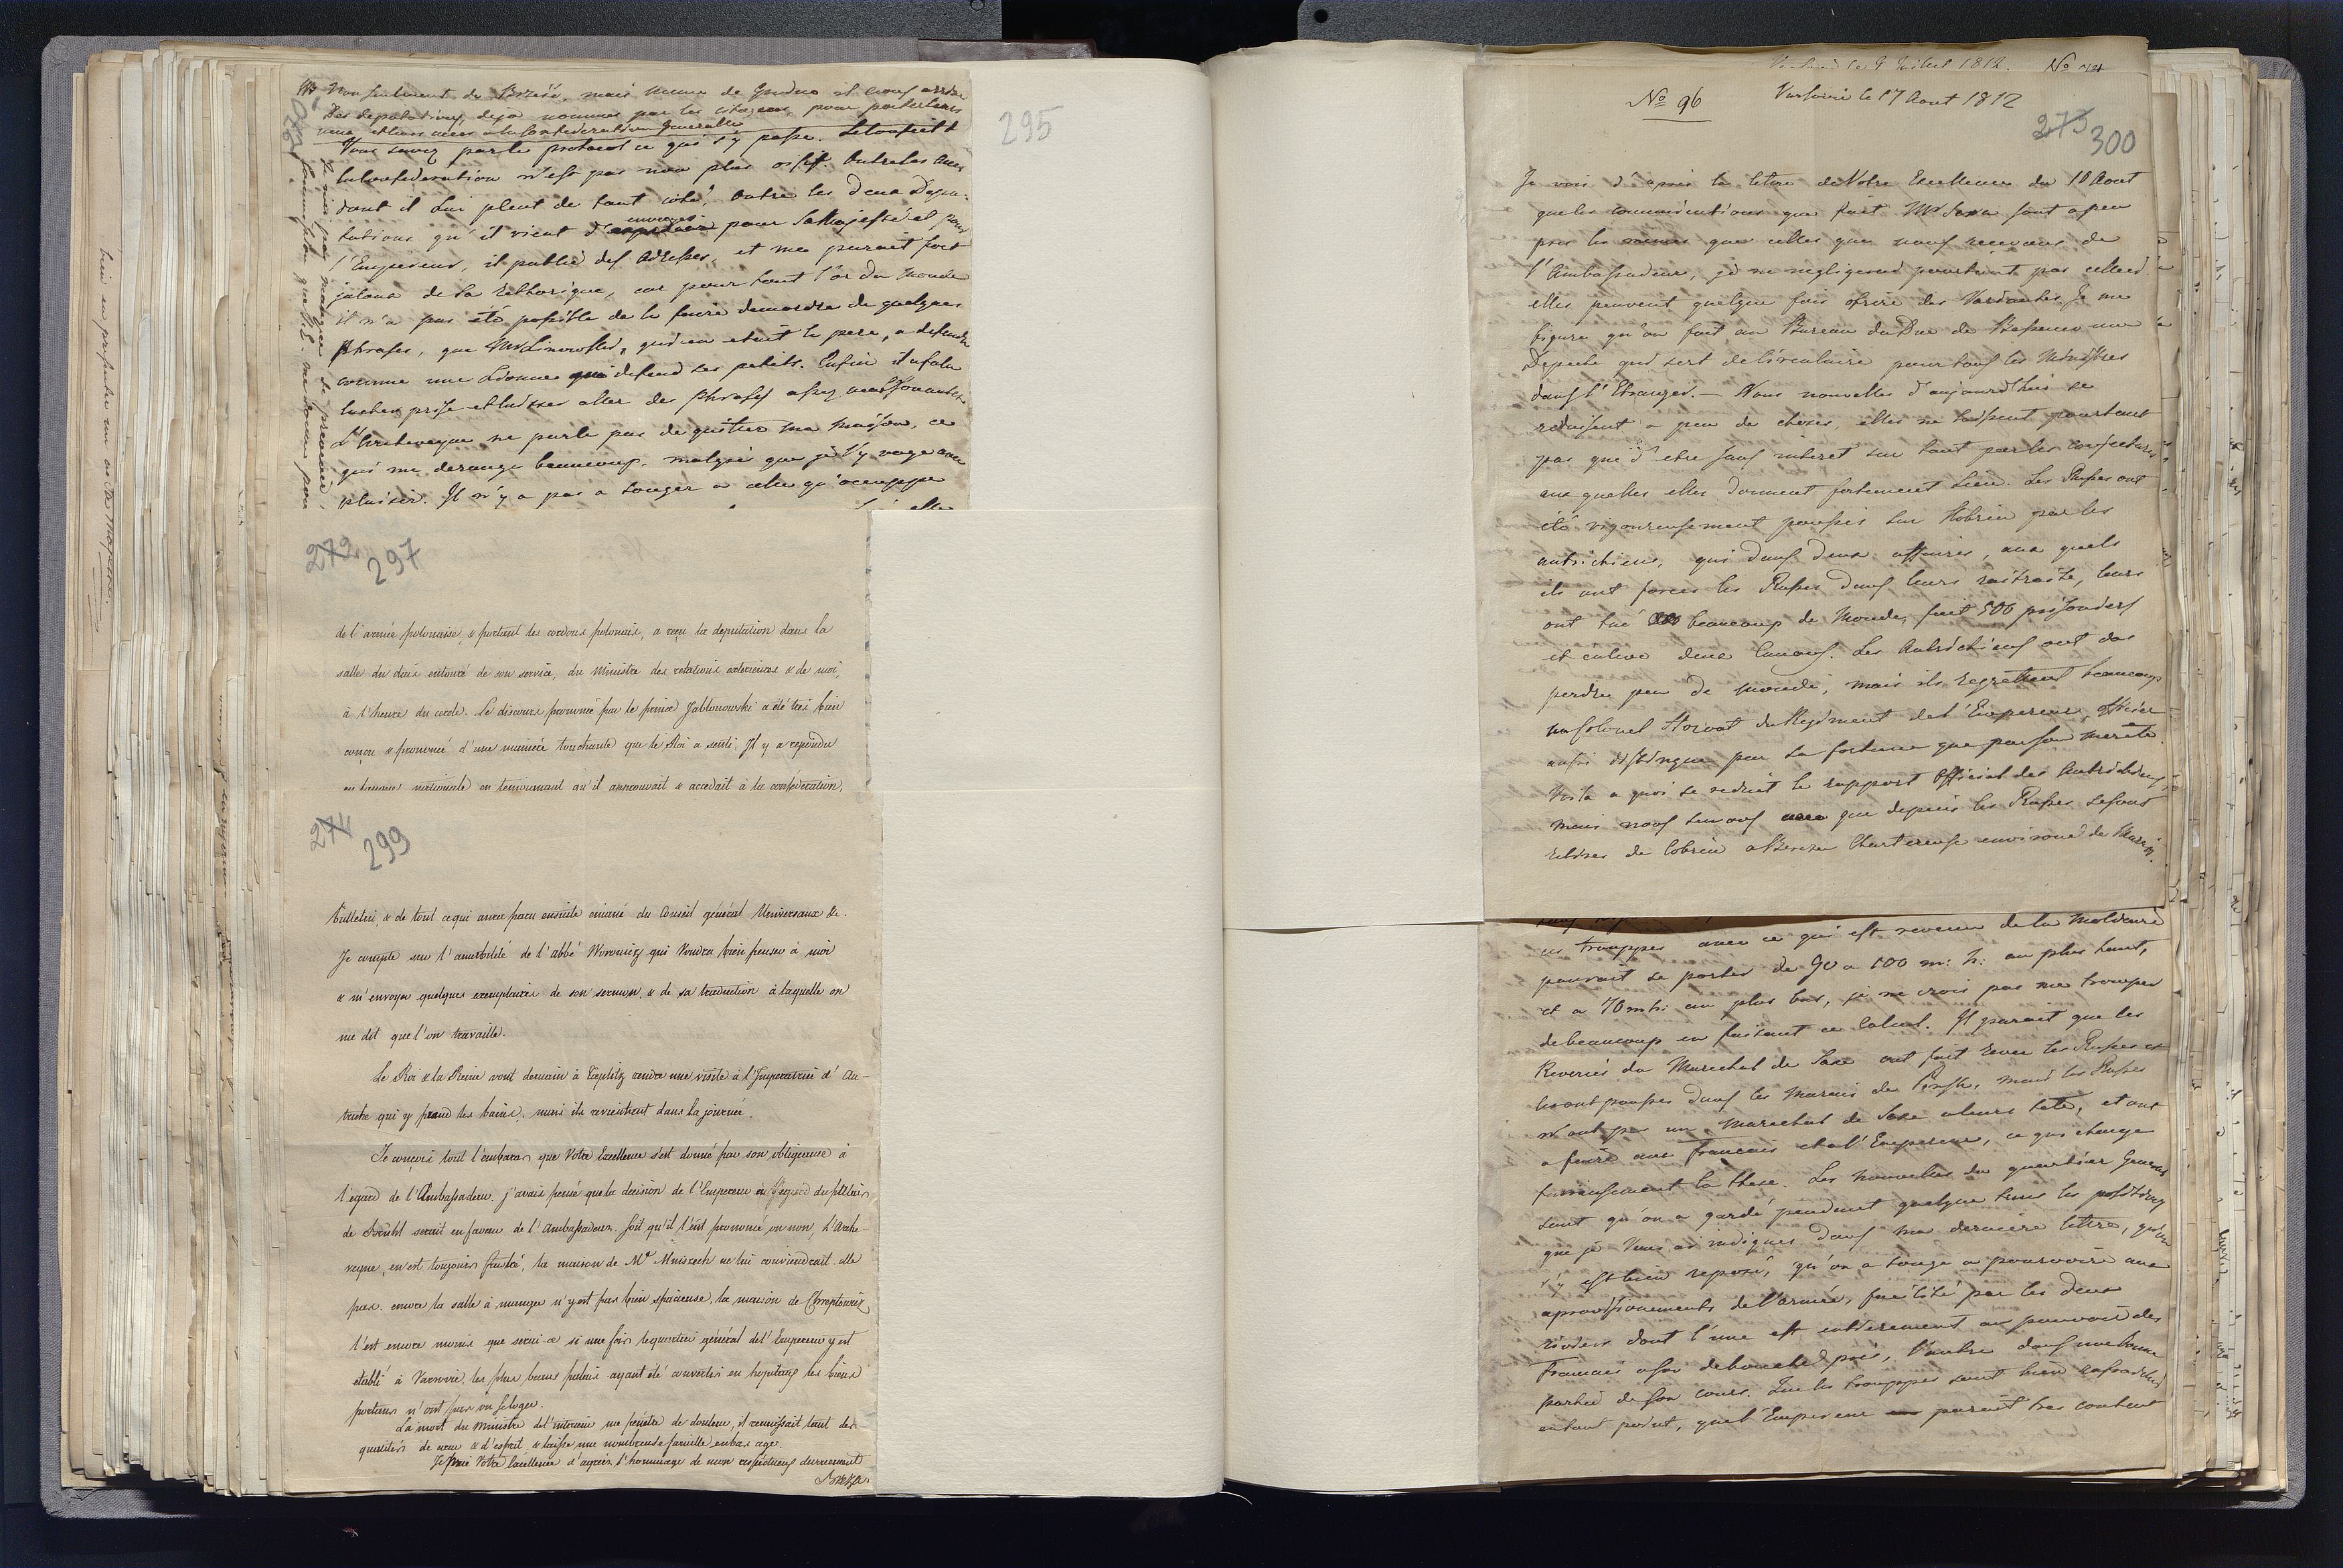 NB Non seulement de Brzesc, mais meme de Grodno il nous arrive
des deputations, deja nommes par les citoyens, pour porter leurs
a la Confederation Generalle
Vous savez par le protocol ce qui s'y passe. Le Conseil d
la Confederation n'est pas non plus oisif. Outre les avis
dont il lui pleut de tout coté, outre les deux Depu-
tations qu'il vient d' envoyer pour Sa Majesté et pour
l'Empereur, il publie des Adresses, et me parait fort
jaloux de sa Rethorique, car pour tout l'or du monde
il n'a pas été possible de le faire demordre de quelques
phrases, que Mr Linowski, qui en etait le pere, a defendu
comme une Lionne qui defend ses petits. Enfin il a falu
lacher prise et laisser aller des phrases assez
L'Archeveque ne parle pas de quitter ma maison, ce
qui me derange beaucoup, malgré que je l'y voye avec
plaisir. Il n'y a pas a songer a celle qu'occuppe
295
272 297
de l'armée polonaise, & portant les cordons polonais, a reçu la deputation dans la
salle du dais entouré de son service, du Ministre des relations exterieures & de moi,
à l'heure du cercle. Le discours prononcé par le prince Jablonowski a été très bien
conçu & prononcé d'une manière touchante que le Roi a senti. Il y a repondu
en nationale en temoignant qu'il approuvait & accedait à la confederation,
274 299
bulletin, & de tout ce qui aura paru ensuite emané du Conseil général Universaux &c.
Je compte sur l'amabilité de l'abbé Woronicz qui voudra bien penser à moi
& m'envoyer quelques exemplaires de son sermon, & de sa traduction à laquelle on
me dit que l'on travaille.
Le Roi & la Reine vont demain à Töplitz rendre une visite à l'Imperatrice d'Au-
triche qui y prend les bains, mais ils reviendront dans la journée.
Je conçois tout l'embarras que Votre Excellence s'est donné par son obligeance à
l'egard de l'Ambassadeur. j'avais pensé que la decision de l'Empereur à l'egard du palais
de Brühl serait en faveur de l'Ambassadeur. Soit qu'il l'eût prononcé ou non, l'Arche-
veque, en est toujours frustré, la maison de Mr Mniszech ne lui conviendrait elle
pas. encore la salle à manger n'y est pas bien spacieuse, la maison de Chreptowicz
l'est encore moins que serai-ce si une fois le quartier général de l'Empereur y est
établi à Varsovie, les plus beaux palais ayant été convertis en hopitaux les biens
portans n'ont pas ou se loger.
La mort du Ministre de l'interieur me penetre de douleur, il reunissait tant de
qualités de cœur & d'esprit, & laisse une nombreuse famille en bas age.
Je prie Votre Excellence d'agréer l'hommage de mon respectueux devouement
Breza
le 9 Juillet 1812.
No 96
Varsovie le 17 Aout 1812
275 300
Je vois d'apres la lettre de Votre Excellence du 10 Aout
que les communications que fait Mr Serra sont a peu
pres les memes que celles que nous recevons de
l'Ambassadeur, je ne negligerai pourtant pas celles ci.
elles peuvent quelque fois ofrir des Variantes. Je me
figure qu'on fait au Bureau du Duc de Bassano une
Depeche qui sert de Circulaire pour tous les Ministres
dans l'Etranger. — Nous nouvelles d'aujourd'hui se
reduisent a peu de choses, elles ne laissent pourtant
pas que d'etre sans interet sur tout par les conjectures
aux quelles elles donnent fortement lieu. Les Russes ont
été vigoureusement poussés sur Kobrin par les
autrichiens, qui dans deux affaires, aux quels
ils ont forcés les Russes dans leurs retraite, leurs
ont tué beaucoup de Monde, fait 500 prisonniers
et enlevé deux Canons. Les Autrichiens ont du
perdre peu de monde, mais ils regrettent beaucoup
un Colonel Horvat du Regiment de l'Empereur, officier
aussi distingué par sa fortune que par son merite.
Voila a quoi se reduit le rapport Officiel des Autrichiens,
mais nous savons que depuis les Russes se sont
retirer de Cobrin a Bereza Chartreuse environné de Marais.
ces trouppes avec ce qui est revenu de la Moldavie
pouvait se porter de 90 a 100 m: h: au plus haut,
et a 70 m h: au plus bas, je ne crois pas me tromper
de beaucoup en faisant ce Calcul. Il parait que les
Reveries du Marechal de Saxe ont fait rever les Russes et
les ont poussés dans les Marais de Pinsk, mais les Russes
n'ont pas un Marechal de Saxe a leurs tete, et ont
a faire aux francais et a l'Empereur, ce qui change
furieusement la these. Les nouvelles du quartier General
sont qu'on a gardé pendant quelque tems les positions
que je Vous ai indiqués dans ma derniere lettre, qu'on
s'y est bien reposé, qu'on a songé a pourvoire aux
aprovisionements de l'armée, facilité par les deux
rivieres dont l'une est entierement au pouvoir des
Francais a son debouché près, l'autre dans une bonne
partie de son cours. Que les trouppes sont bien rafraichi
au tout point, que l'Empereur parait tres content